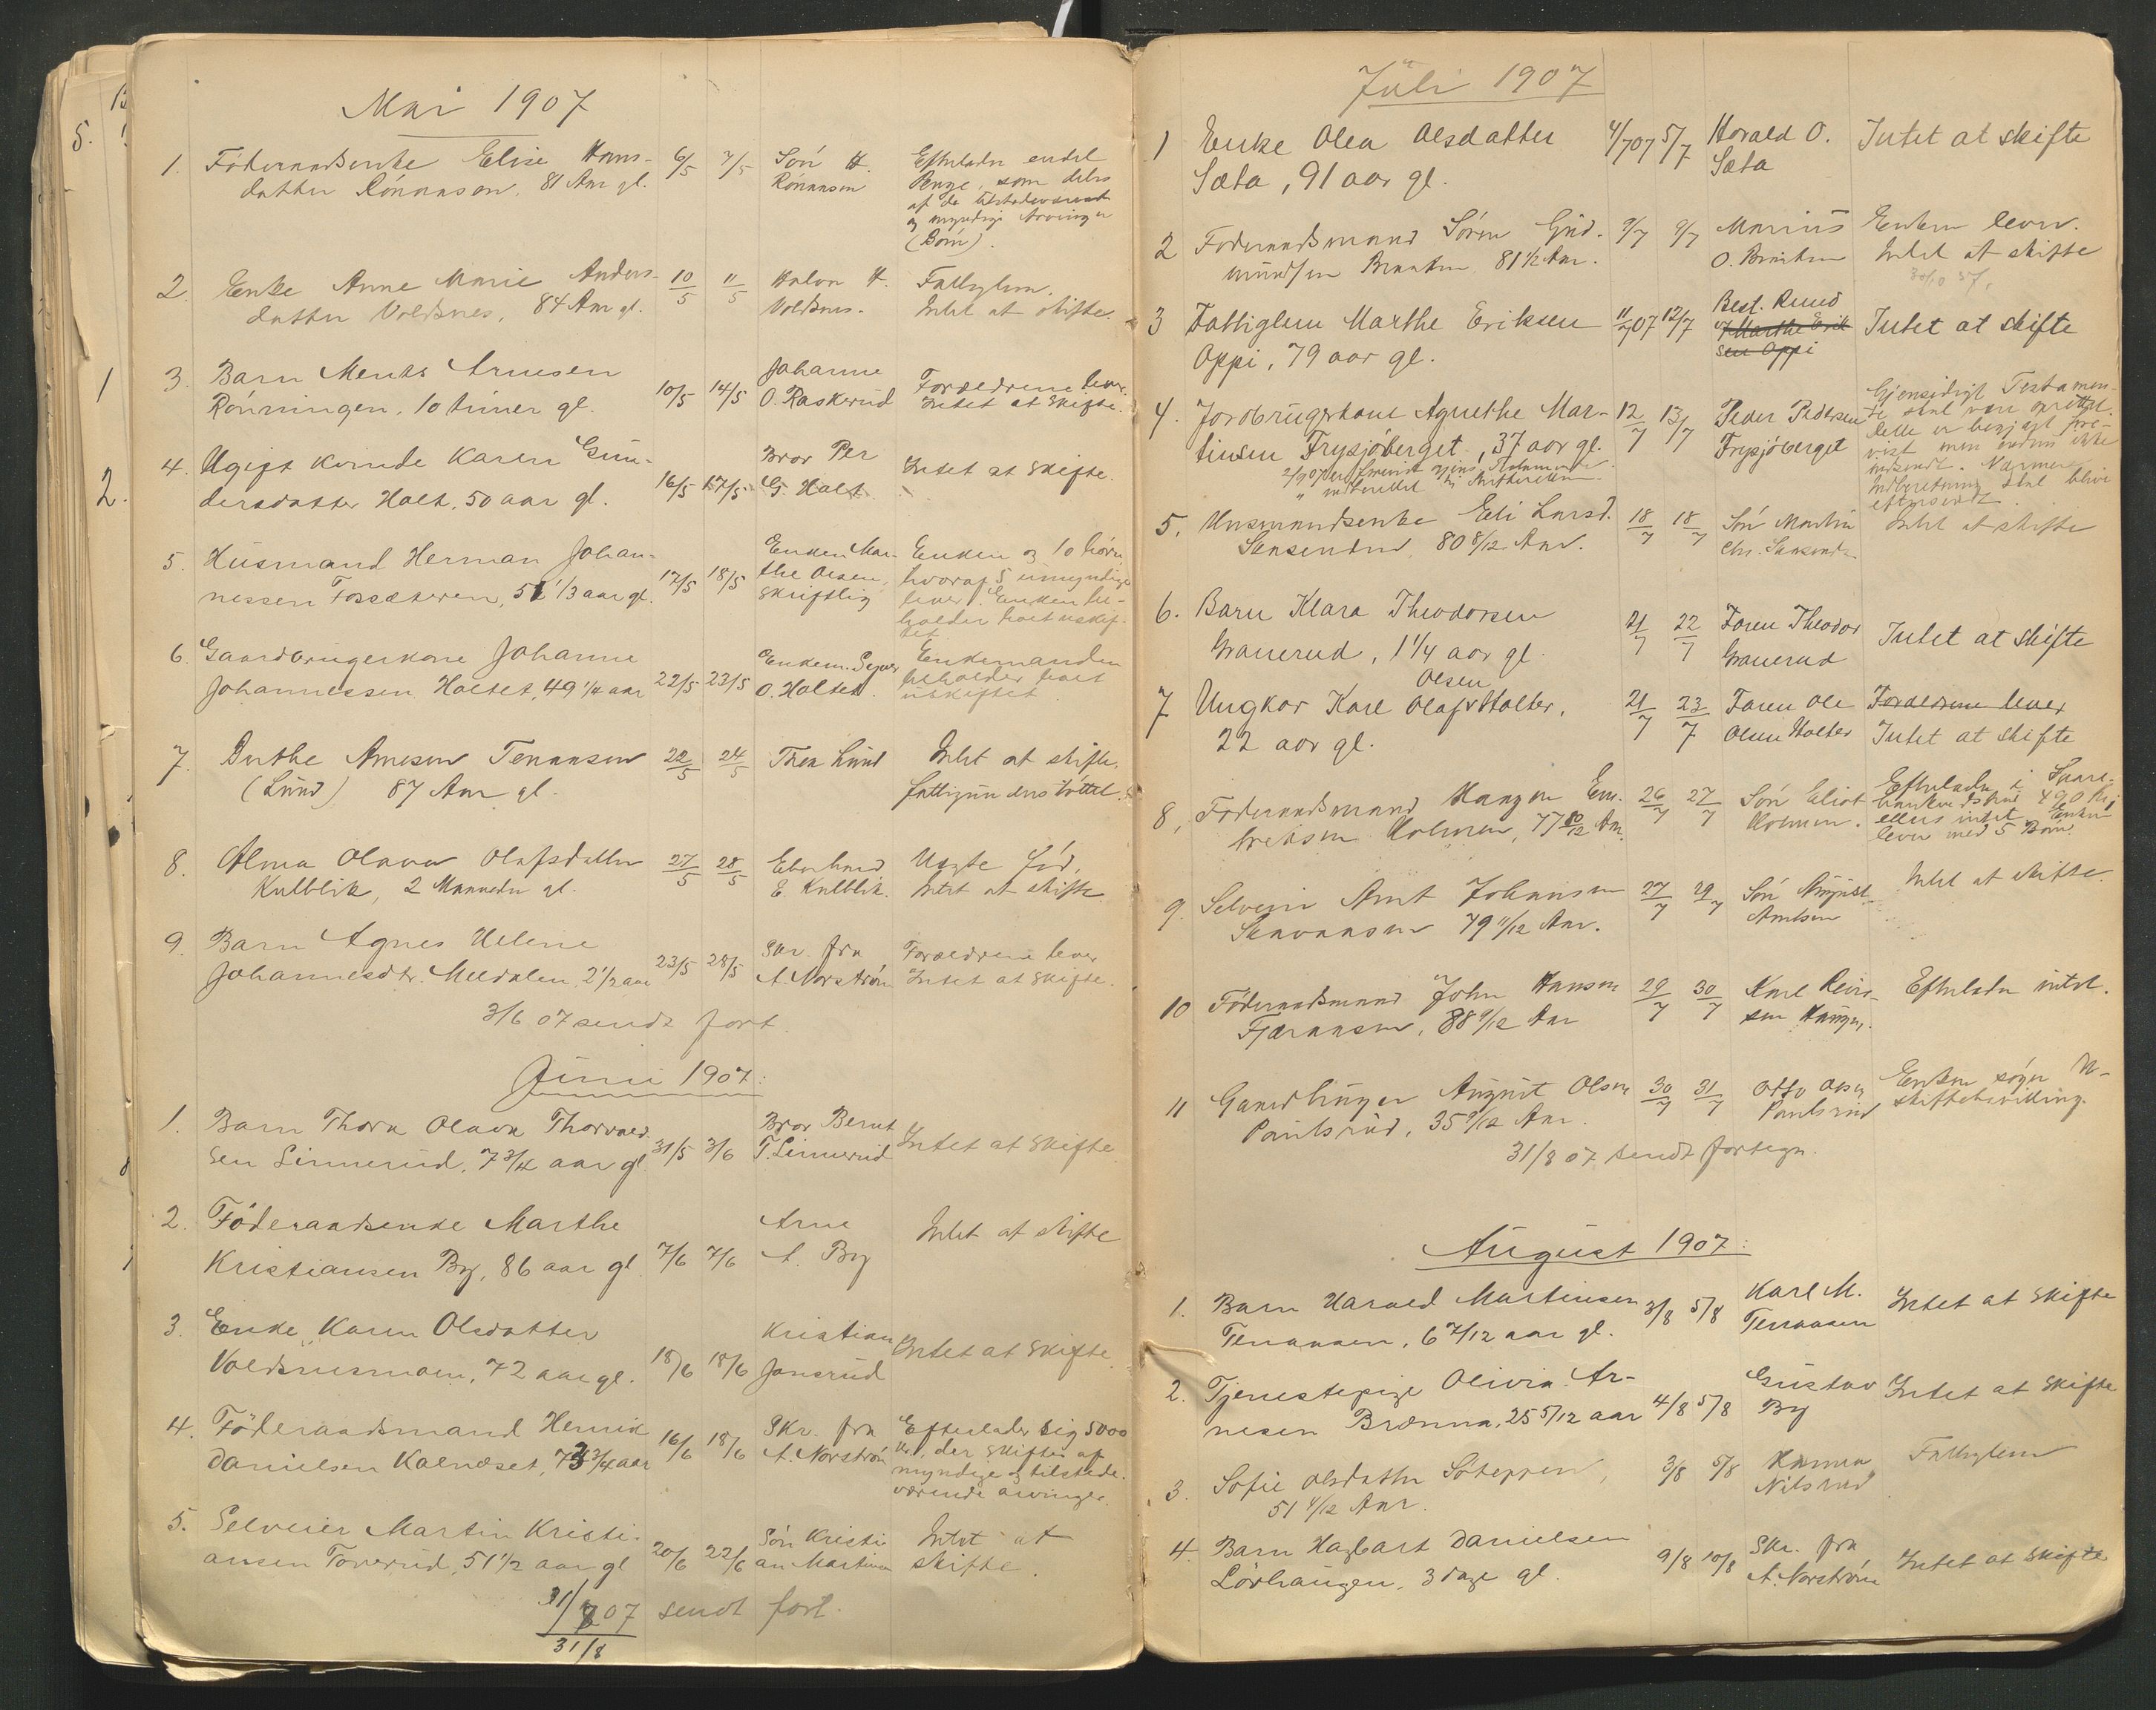 Mai 1907
1. Föderaadsenke Elise Hans- 6/5 7/5 Sön H. Efterlader endel
datter Rönaasen, 81 Aar gl. Rönaasen Penge, som deles
af de tilstedeværende
og myndige Arvinger
(Börn).
2. Enke Anne Marie Anders- 10/5 11/5 Halvor H. Fattiglem.
datter Voldsnes, 84 Aar gl. Voldsnes. Intet at skifte.
3. Barn Arnesen 10/5 14/5 Johanne Forældrene lever.
Rönningen, 10 timer gl. O. Raskerud Intet at skifte.
4. Ugift kvinde Karen Gun- 16/5 17/5 Bror Per Intet at skifte.
dersdatter Holt, 50 aar gl. G. Holt
5. Husmand Herman Johan- 17/5 18/5 Enken Mar- Enken og 10 börn,
nessen Fossæteren, 51 1/3 aar gl. the Olsen, hvoraf 5 umyndige
skriftlig lever. Enken be-
holder boet uskif-
tet.
6. Gaardbrugerkone Johanne 22/5 23/5 Enkem. Syver Enkemanden
Johannessen Holtet, 49 1/4 aar O. Holtet. beholder boet
uskiftet
7. Dorthe Arnesen Tenaasen 22/5 24/5 Thea Lund Intet at skifte.
(Lund) 87 Aar gl. fattigunderstöttet.
8. Alma Olava Olafsdatter 27/5 28/5 Eberhard Uægte fö́d.
Kulblik, 2 Maaneder gl. E. Kulblik. Intet at skifte
9. Barn Agnes Helene 23/5 28/5 Skr. fra Forældrene lever
Johannesdtr. Meldalen, 2 1/2 aar A. Norström Intet at skifte.
3/6 07 sendt fort.
Juni 1907:
1. Barn Thora Olava Thorvald- 31/5 3/6 Bror Bernt Intet at skifte
sen Linnerud, 7 3/4 aar gl T. Linnerud
2. Föderaadsenke Marthe 7/6 7/6 Arne Intet at skifte
Kristiansen By, 86 aar gl A. By
3. Enke Karen Olsdatter 18/6 18/6 Kristian Intet at skifte.
Voldsnesmoen, 72 aar gl. Jonsrud
4. Föderaadsmand Henrik 16/6 18/6 Skr. fra Efterlader sig 5000
Danielsen Kalnæset, 73 3/4 aar A. Norström kr., der skiftes af
myndige og tilstede-
værende arvinger.
5. Selveier Martin Kristi- 20/6 22/6 Sön Kristi- Intet at
ansen Torrerud, 51 1/2 aar gl an Martinsen skifte.
31/7 07 sendt fort.
31/8
Juli 1907
1 Enke Olea Olsdatter 4/7 07 5/7 Harald O. Intet at skifte
Sæta, 91 aar gl. Sæta
2 Föderaadsmand Sören Gud- 9/7 9/7 Marius Enken lever.
mundsen Braaten 81 1/2 Aar. O. Braaten Intet at skifte
3 Fattiglem Marthe Eriksen 11/7 07 12/7 Best. Ruud Intet at skifte
Oppi, 79 aar gl. Marthe Erik
sen Oppi
4. Jordbrugerkone Agnethe Mar- 12/7 13/7 Peder Pedersen Gjensidigt Testamen-
tinsen Frysjöberget, 37 aar gl. Frysjöberget te skal være oprettet.
Dette er begjært fre-
vist men endnu ikke
indsendt. Nærmere
Indberetning skal blive
eftersendt
5. Husmandsenke Eli Larsd. 18/7 18/7 Sön Martin Intet at skifte
80 8/12 Aar. Chr.
6. Barn Klara Theodorsen 21/7 22/7 Faren Theodor Intet at skifte
Granerud, 1 1/4 aar gl. Granerud
7 Ungkar Karl Olaf Olsen Holter, 21/7 23/7 Faren Ole Forældrene lever
22 aar gl. Olsen Holter Intet at skifte
8, Föderaadsmand Haagen Em- 26/7 27/7 Sön Eliot Efterlader i Spare-
bretsen Holmen, 77 10/12 Aar. Holmen. bankindskud 490 kr;
ellers intet. Enken
lever med 5 Börn.
9. Selveier Arnt Johansen 27/7 29/7 Sön August Intet at skifte.
79 11/12 Aar. Arntsen
10 Föderaadsmand John Hansen 29/7 30/7 Karl Reier- Efterlader intet.
Fjæraasen, 88 9/12 Aar sen Haugen.
11 Gaardbruger August Olsen 30/7 31/7 Otto Olsen Enken söger U-
Paulsrud, 35 9/12 Aar. Paulsrud skiftebevilling.
31/8 07 sendt fortegn.
August 1907:
1. Barn Harald Martinsen 3/8 5/8 Karl M. Intet at skifte
Tenaasen, 6 7/12 aar gl. Tenaasen
2. Tjenestepige Olivia Ar- 4/8 5/8 Gustav Intet at skifte
nesen Brænna, 25 5/12 aar By
3. Sofie Olsdatter Söteppen, 3/8 5/8 Hanna Fattiglem
51 4/12 Aar. Nilsrud
4. Barn Hagbart Danielsen 9/8 10/8 Skr. fra Intet at skifte
Lövhaugen, 3 dage gl. A. Norström